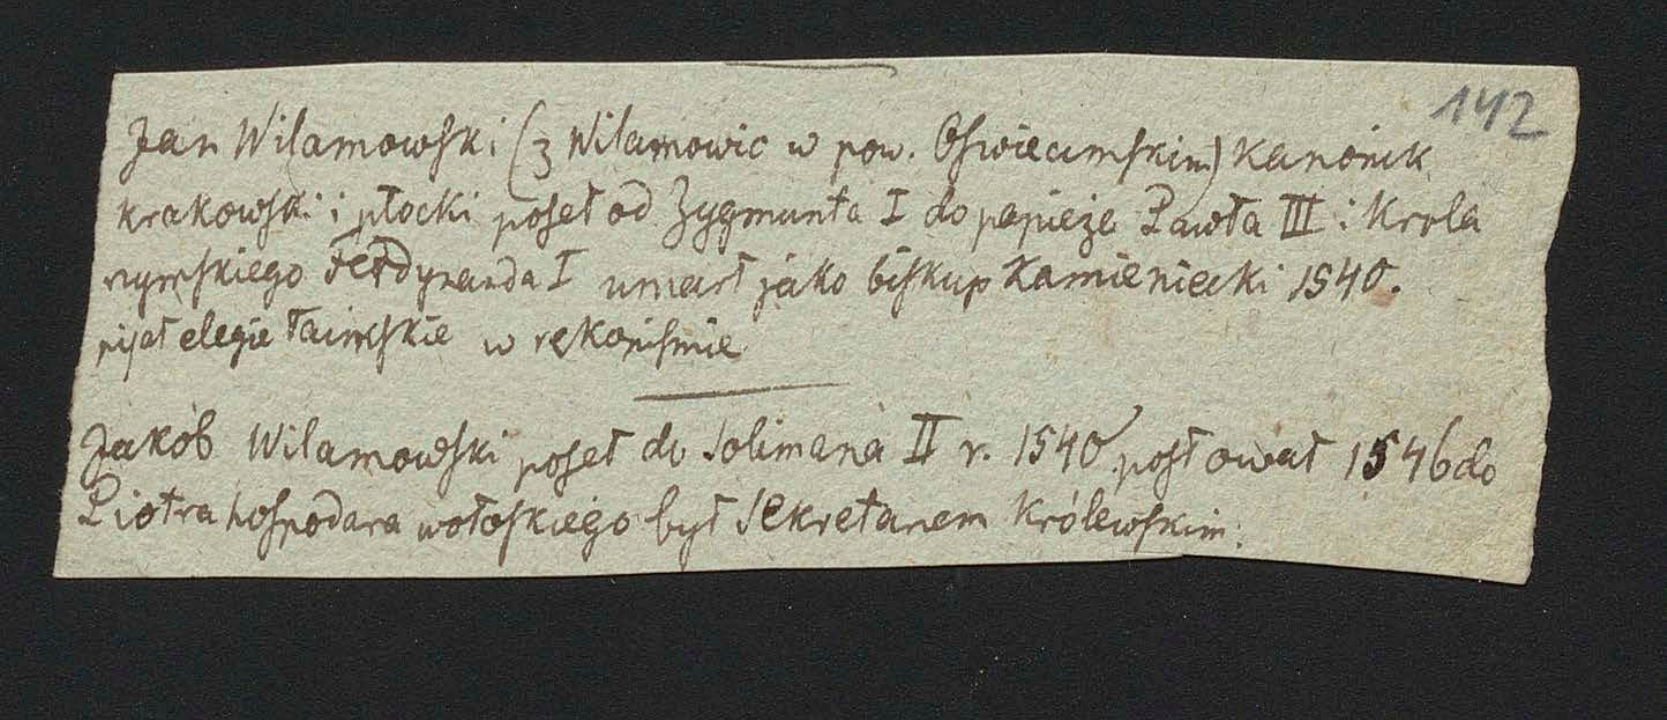 142
Jan Wilamowski (z Wilamowic w pow. Oswiecimskim) Kanonik
krakowski i płocki poseł od Zygmunta I do papieża Pawła III i Krola
rzymskiego Ferdynanda I umarł jako biskup Kamieniecki 1540.
pisał elegie łacinskie w rękopismie
Jakób Wilamowski poseł do Solimana II r. 1540 posłował 1546 do
Piotra hospodara wołoskiego był Sekretarzem Królewskim.